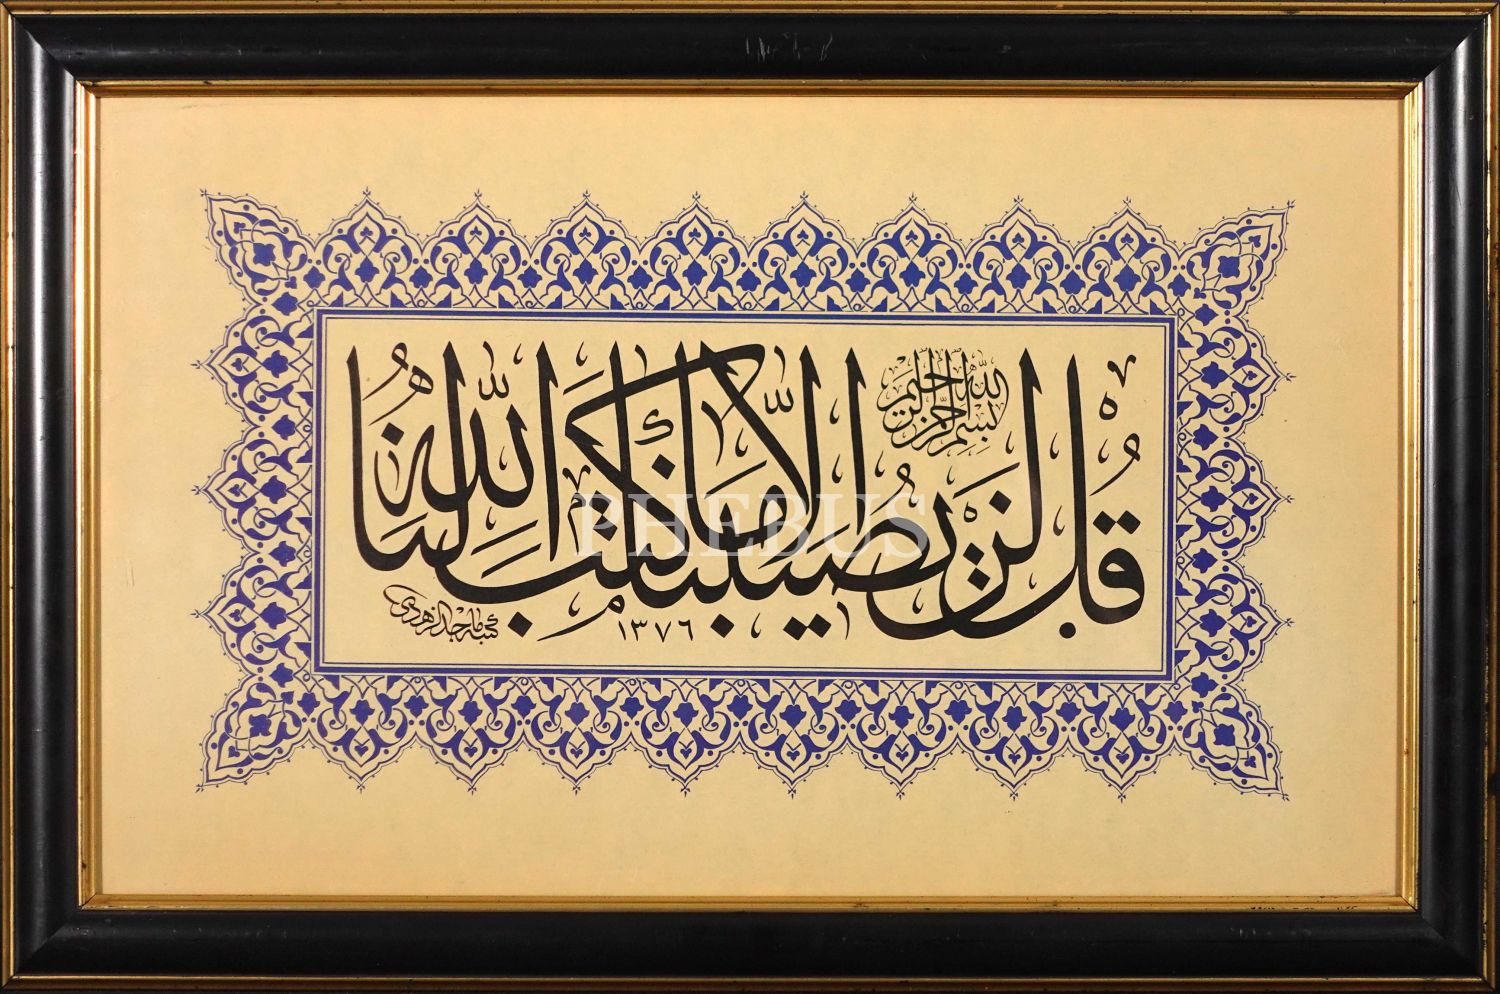 بسم الله الرحمن الرحيم
قل لن يصيبنا الا ما كتب الله لنا
١٣٧٦
كتبه ماجد الزهدى
PHEBUS